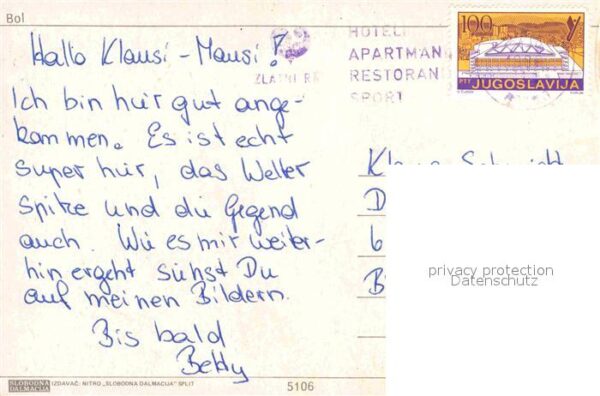 Bol
Hallo Klausi-Mausi!
Ich bin hier gut ange-
kommen. Es ist echt
super hier, das Wetter
Spitze und die Gegend
auch. Wie es mir weiter-
hin ergeht siehst Du
auf meinen Bildern.
Bis bald
Betty
ZLATNI
HOTELI
APARTMAN
RESTORAN
SPORT
100
PTT JUGOSLAVIJA
privacy protection
Datenschutz
SLOBODNA
DALMACIJA
IZDAVAČ: NITRO „SLOBODNA DALMACIJA" SPLIT
5106